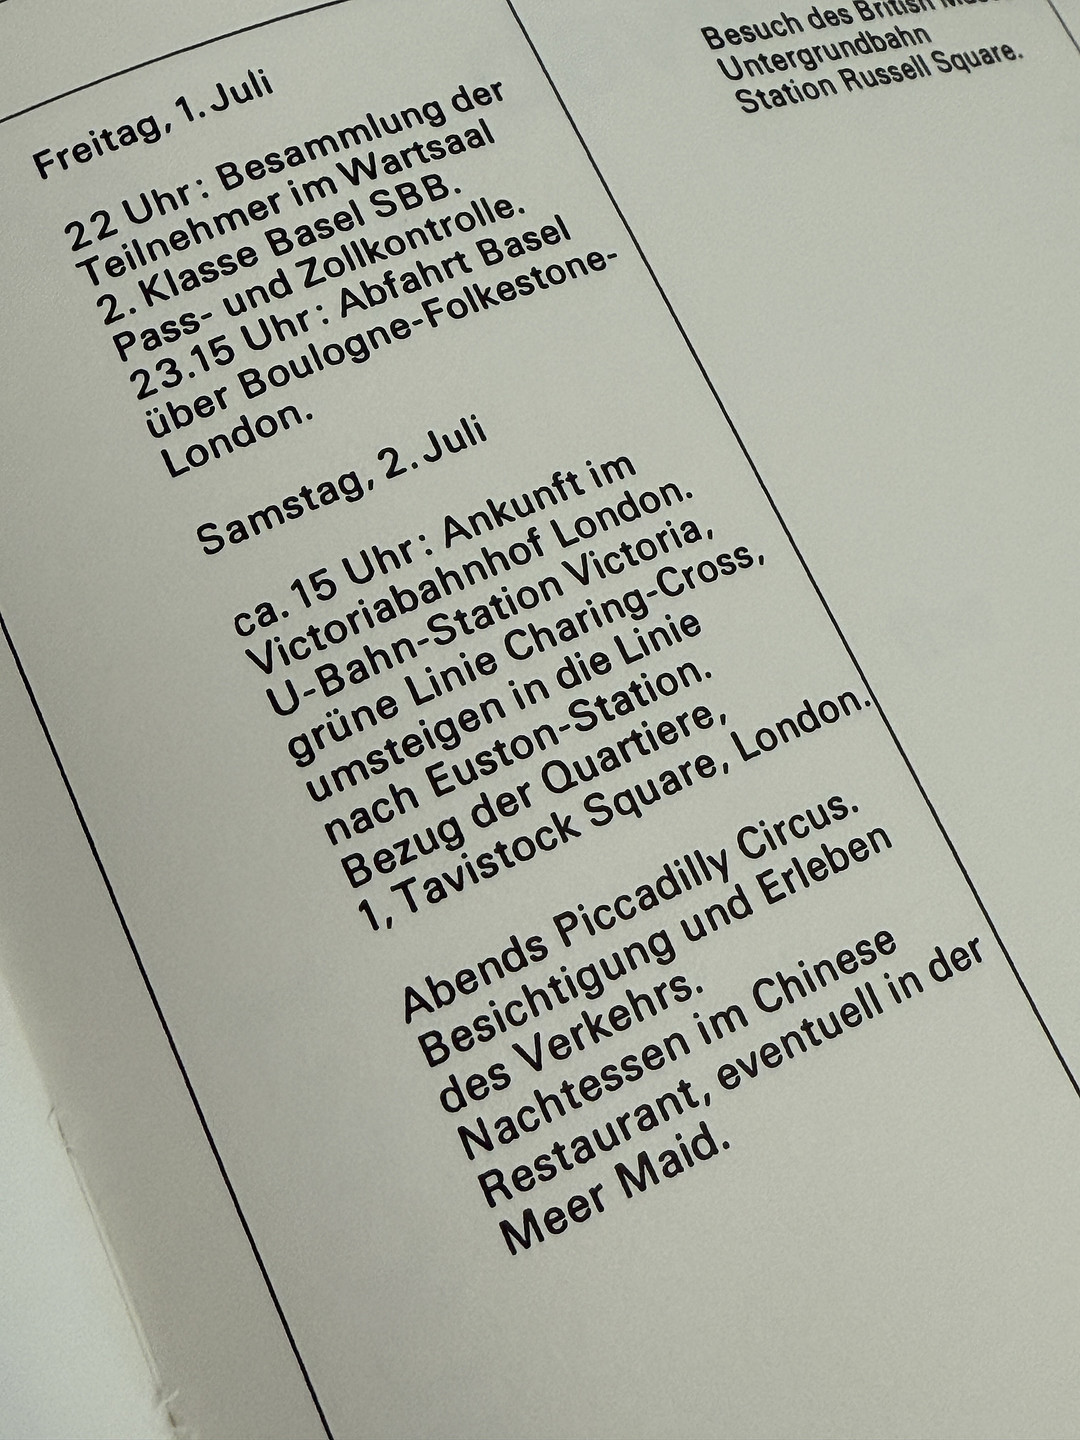 Freitag, 1. Juli
22 Uhr: Besammlung der
Teilnehmer im Wartsaal
2. Klasse Basel SBB.
Pass- und Zollkontrolle.
23.15 Uhr: Abfahrt Basel
über Boulogne-Folkestone-
London.
Samstag, 2. Juli
ca. 15 Uhr: Ankunft im
Victoriabahnhof London.
U-Bahn-Station Victoria,
grüne Linie Charing-Cross,
umsteigen in die Linie
nach Euston-Station.
Bezug der Quartiere,
1, Tavistock Square, London.
Abends Piccadilly Circus.
Besichtigung und Erleben
des Verkehrs.
Nachtessen im Chinese
Restaurant, eventuell in der
Meer Maid.
Besuch des British
Untergrundbahn
Station Russell Square.